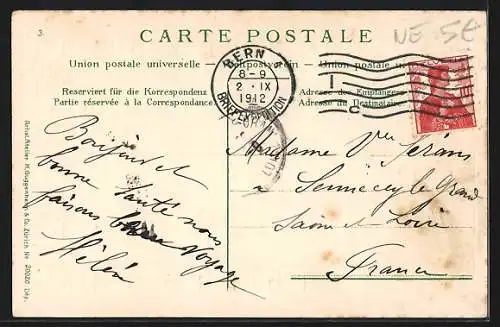 3
CARTE POSTALE
NE 5€
Union postale universelle — Weltpostverein — Union postale
Reserviert für die Korrespondenz
Partie réservée à la Correspondance
Adresse des Empfängers
Adresse du Destinataire
BERN
8-9
2·IX
1912
BRIEFEXPEDITION
Bonjour et
bonne santé nous
faisons bon voyage
Hélène
Madame Vve
à
Sennecey le Grand
Saône et Loire
France
H. Guggenheim & Co. Zürich